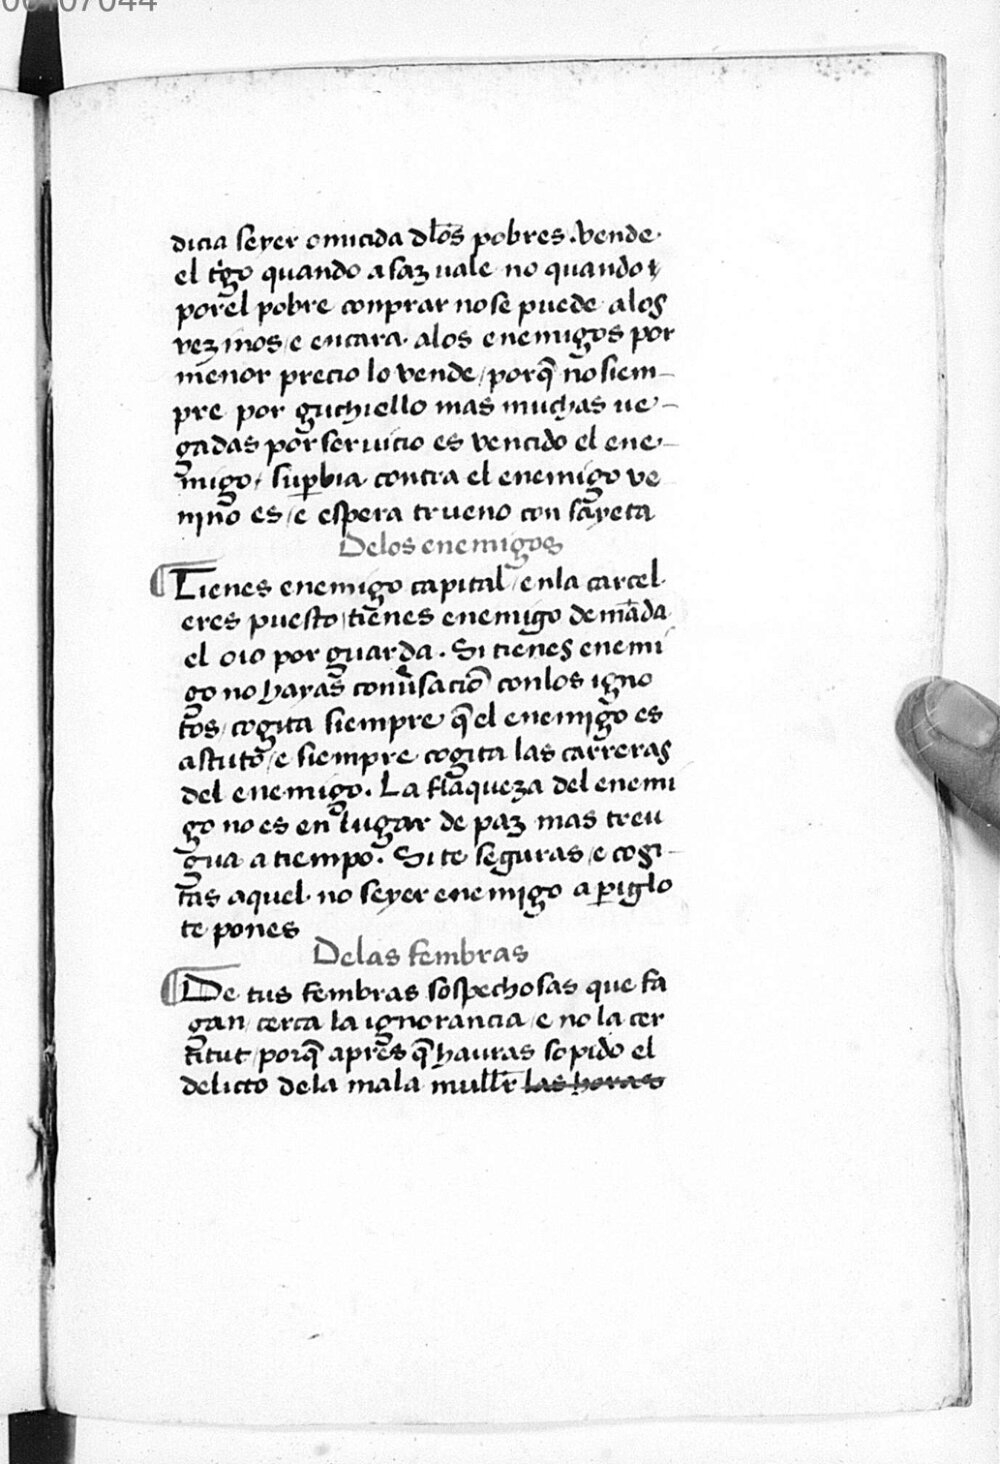 00107044
dicia seyer omicida dlos̄ pobres. vende
el tͥgo quando asaz uale no quando
por el pobre conprar no se puede alos
vezinos / e encara alos enemigos por
menor precio lo vende / porq̄ no siem-
pre por guchiello mas muchas ue-
gadas por seruicio es vencido el ene-
migo / suꝑbia contra el enemigo ve
nino es / e espera trueno con sayeta
Delos enemigos
¶ Tienes enemigo capital / enla carcel
eres puesto / tienes enemigo demāda
el oio por guarda. Si tienes enemi
go no hayas conũsacio͂ conlos igno
tos / cogita siempre q̄ el enemigo es
astuto / e siempre cogita las carreras
del enemigo. La flaqueza del enemi
go no es en lugar de paz mas treu
gua a tiempo. Si te seguras / e cogi-
tas aquel no seyer enemigo a ꝑiglo
te pones
Delas fembras
¶ De tus fembras sospechosas que fa
gan / cerca la ignorancia / e no la cer
titut / porq̄ apres q̄ hauras sopido el
delicto dela mala mullr̄ las horas